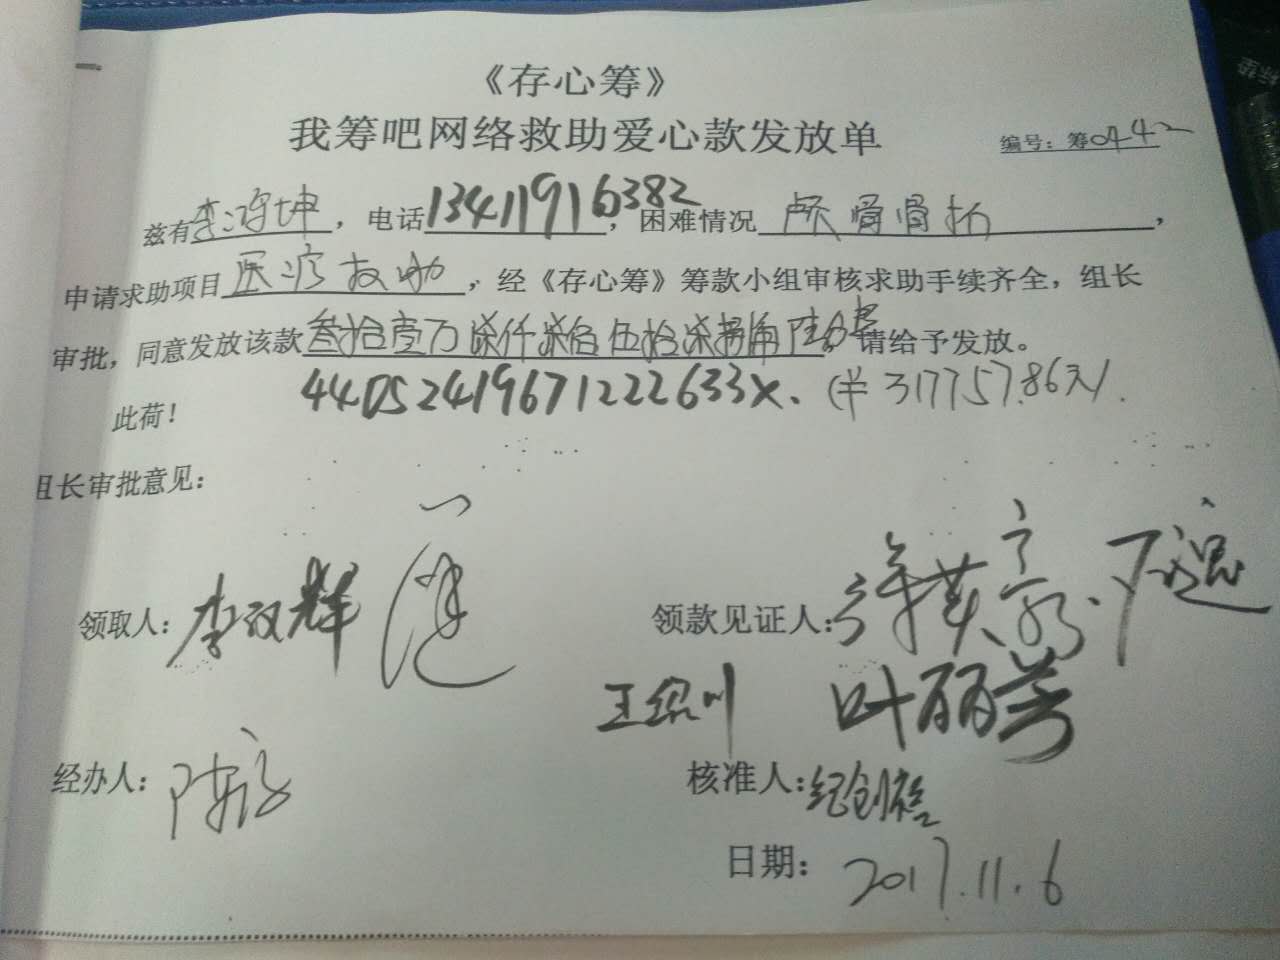 《存心筹》
我筹吧网络救助爱心款发放单
编号：筹0442
兹有李鸿坤，电话13411916382，困难情况 颅骨骨折，
申请求助项目医疗救助，经《存心筹》筹款小组审核求助手续齐全，组长
审批，同意发放该款叁拾壹万柒仟柒佰伍拾柒捌角陆分，请给予发放。
44052419671222633X、(¥317757.86元).
此荷！
组长审批意见：
领取人：李汉辉
领款见证人：
王绍川 叶丽芳
经办人：
核准人：纪创
日期：2017.11.6